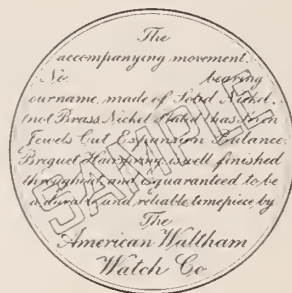 The
accompanying movement.
No. bearing
our name, made of Solid Nickel,
(not Brass Nickel Plated) has
Jewels Cut Expansion Balance.
Breguet Hairspring is well finished
throughout, and is guaranteed to be
a durable and reliable timepiece by
The
American Waltham
Watch Co
SAMPLE